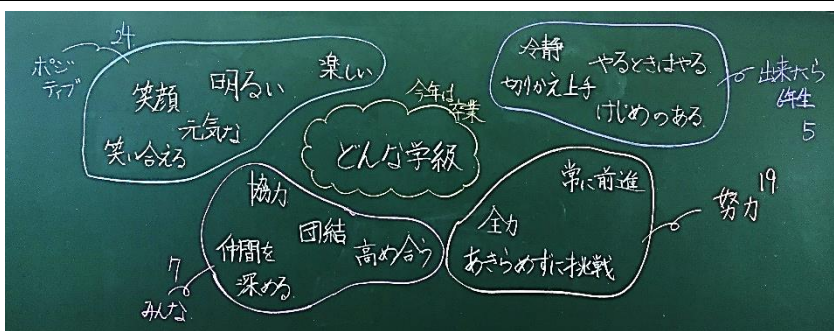 24
ポジ
ティブ
楽しい
明るい
笑顔
元気な
笑い合える
今年は
卒業
どんな学級
冷静
やるときはやる
切りかえ上手
けじめのある
出来たら
6年生
5
協力
団結
仲間を
深める
高め合う
7
みんな
常に前進
全力
あきらめずに挑戦
努力
19